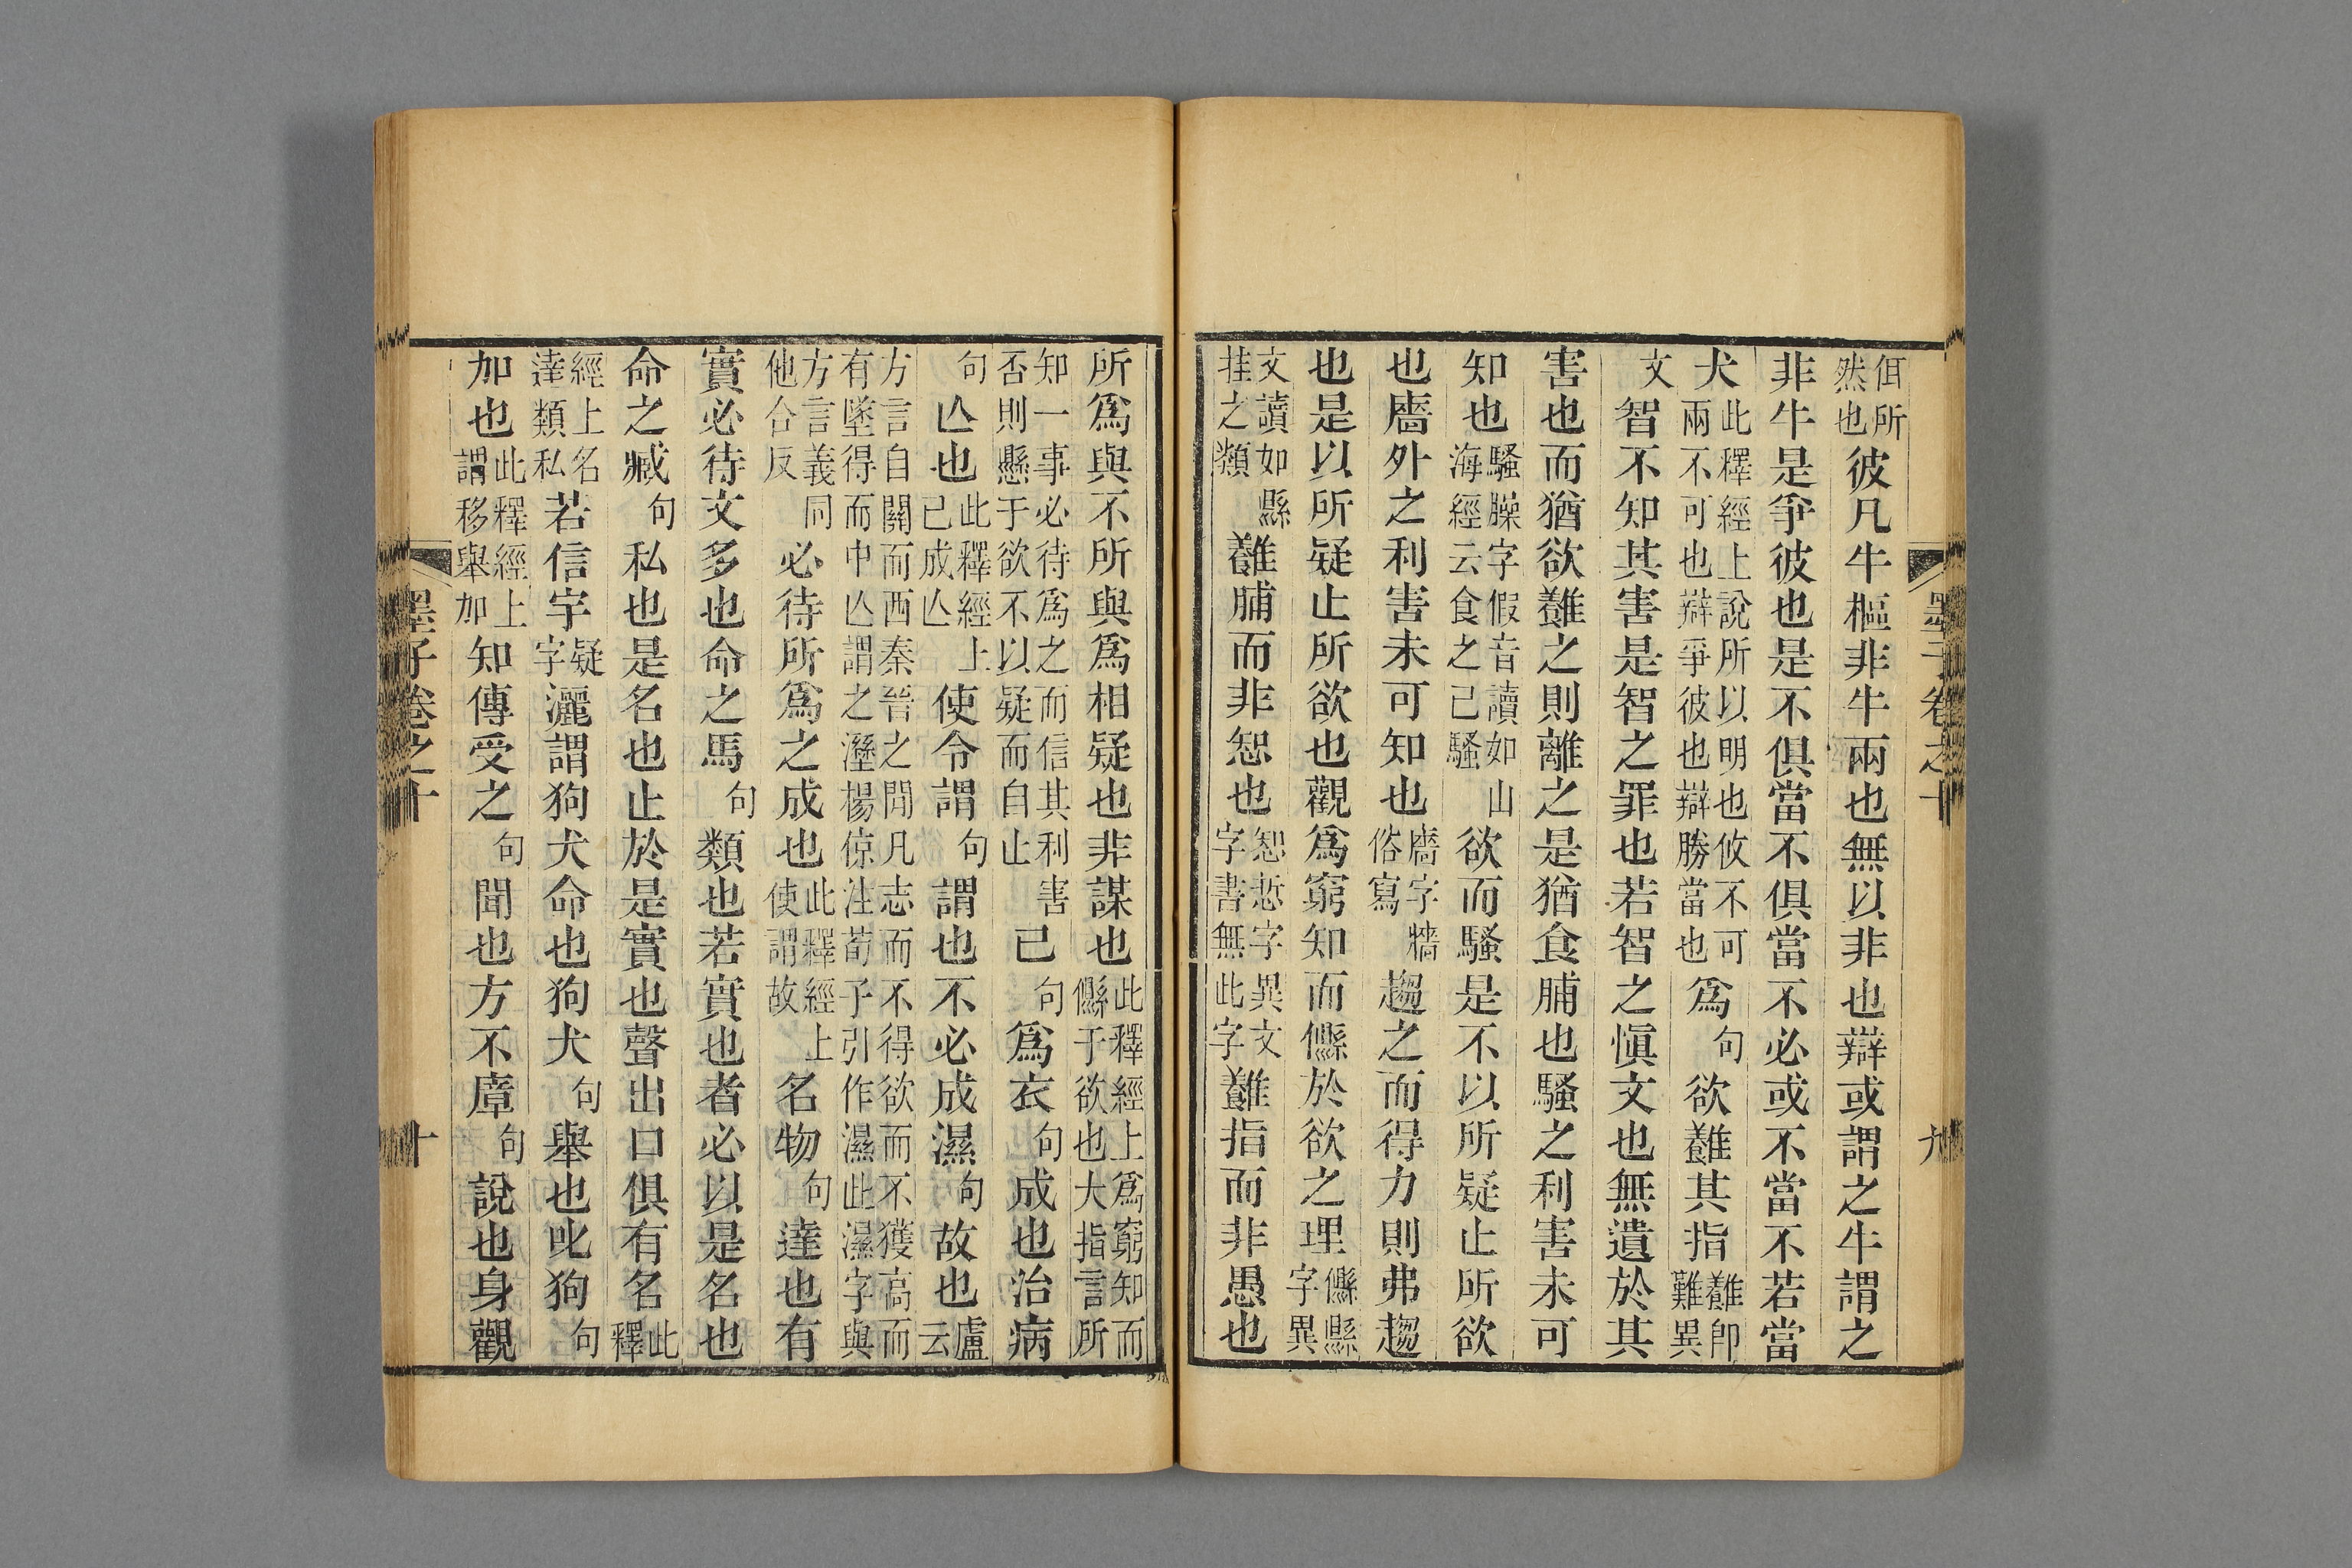 佴所然也彼凡牛樞非牛兩也無以非也辯或謂之牛謂之
非牛是爭彼也是不俱當不俱當不必或不當不若當
犬此釋經上說所以明也攸不可兩不可也辯爭彼也辯勝當也爲句欲䨼其指䨼卽難異
文智不知其害是智之罪也若智之愼文也無遺於其
害也而猶欲䨼之則離之是猶食脯也騷之利害未可
知也騷臊字假音讀如山海經云食之已騷欲而騷是不以所疑止所欲
也廧外之利害未可知也廧字牆俗寫趨之而得力則弗趨
也是以所疑止所欲也觀爲窮知而㒽於欲之理㒽縣字異
文讀如縣挂之類䨼脯而非恕也恕恝字異文字書無此字䨼指而非愚也
墨子卷之十 九
所爲與不所與爲相疑也非謀也此釋經上爲窮知而㒽于欲也大指言所
知一事必待爲之而信其利害否則懸于欲不以疑而自止已句爲衣句成也治病
句亾也此釋經上已成亾使令謂句謂也不必成濕句故也盧云
方言自關而西秦晉之閒凡志而不得欲而不獲高而有墜得而中亾謂之溼楊倞注荀子引作濕此濕字與
方言義同他合反必待所爲之成也此釋經上使謂故名物句達也有
實必待文多也命之馬句類也若實也者必以是名也
命之臧句私也是名也止於是實也聲出口俱有名此釋
經上名達類私若信宇疑字灑謂狗犬命也狗犬句舉也叱狗句
加也此釋經上謂移舉加知傳受之句聞也方不㢓句說也身觀
墨子卷之十 十